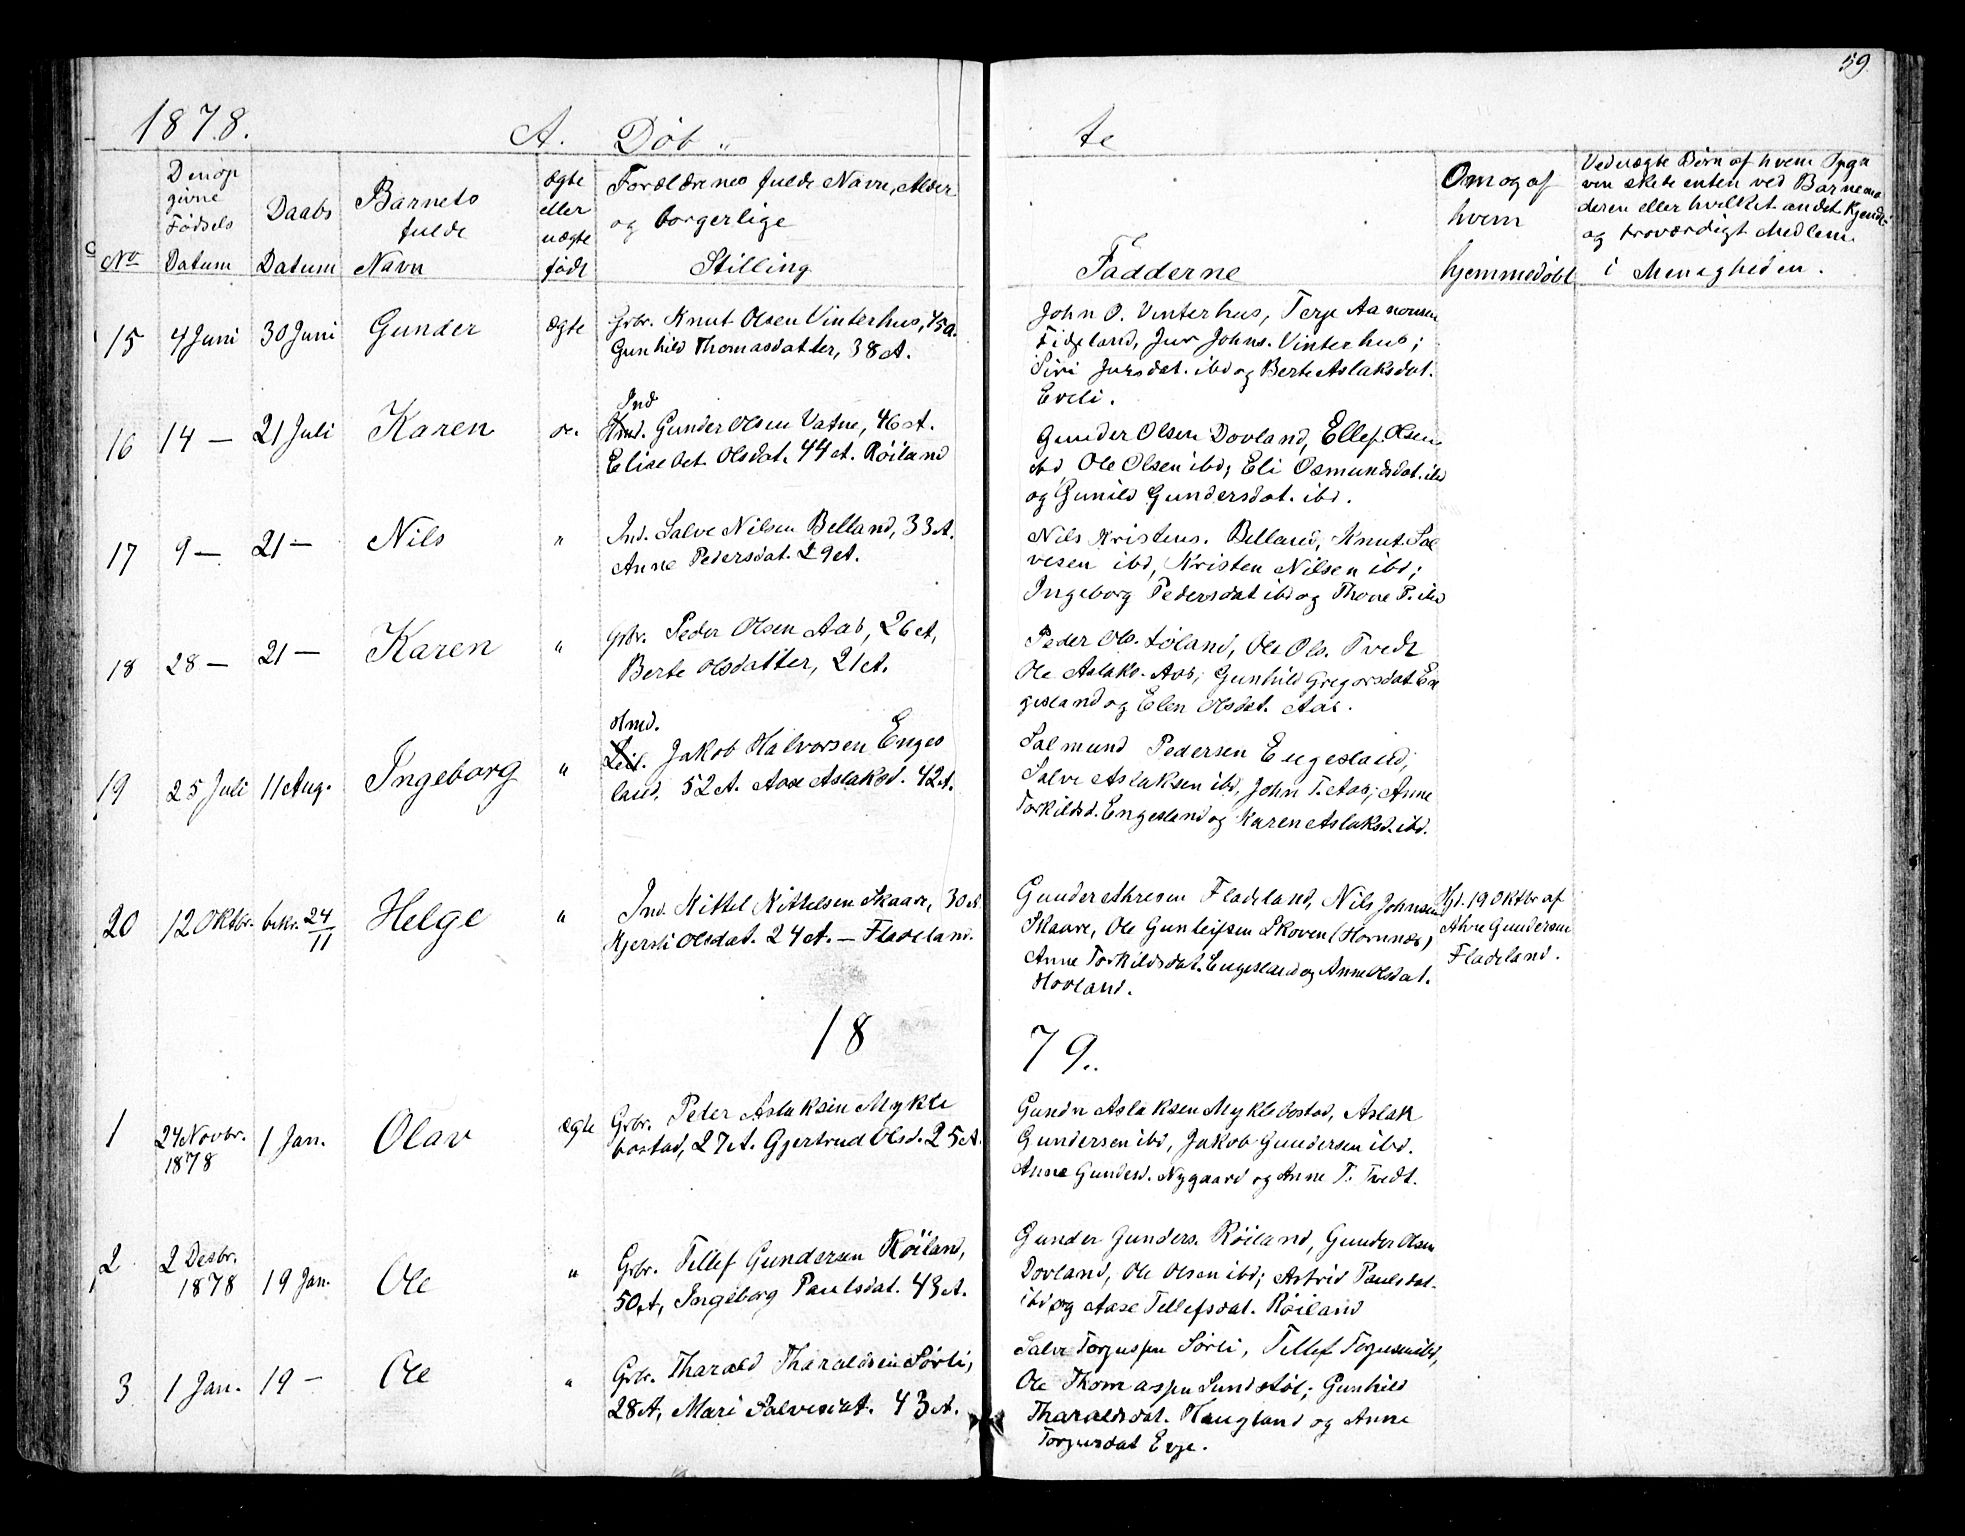 59
1878.
A. Døb "
te
No
Den opgivne Fødsels Datum
Daabs Datum
Barnets fulde Navn
ægte eller uægte født
Forældrenes fulde Navne, Alder og borgerlige Stilling
Fadderne
Om og af hvem hjemmedøbt
Ved uægte Børn af hvem Opgaven skete enten ved Barnemoderen eller hvilket andet kjendt og troværdigt Medlem i Menigheden.
15 4 Juni 30 Juni Gunder ægte Grbr. Knut Olsen Vinterhus, 45 A.
Gunhild Thomasdatter, 38 A.
John O. Vinterhus, Terje Aanonsen
Fidjeland, Jur Johns. Vinterhus;
Siri Jursdat. ibd og Berte Aslaksdat.
Eveli.
16 14 — 21 Juli Karen
Ind
Gunder Olsen Vatne, 46 A.
Elisebet Olsdat. 44 A. Røiland
Gunder Olsen Dovland, Ellef Olsen
ibd, Ole Olsen ibd; Eli Osmundsdat. ibd
og Gunild Gundersdat. ibd.
17 9 — 21 — Nils " Ind. Salve Nilsen Belland, 33 A.
Anne Pedersdat. 29 A.
Nils Kristens. Belland, Knut Sal
vesen ibd, Kristen Nilsen ibd;
Ingeborg Pedersdat ibd og Thone P. ibd
18 28 — 21 — Karen " Grbr. Peder Olsen Aas, 26 A,
Berte Olsdatter, 21 A.
Peder Ols. Løland, Ole Ols. Tvedt
Ole Aslaks. Aas; Gunhild Gregorsdat En
gesland og Elen Olsdat. Aas.
19 25 Juli 11 Aug. Ingeborg "
Hmd.
Leil. Jakob Halvorsen Enges
land, 52 A. Aase Aslaksd. 42 A.
Salmund Pedersen Engesland;
Salve Aslaksen ibd, John T. Aas; Anne
Torkildsd. Engesland og Karen Aslaksd. ibd.
20 12 Oktbr. bekr. 24/11 Helge " Ind. Kittel Kittelsen Skaare, 30 A.
Kjersti Olsdat. 24 A. — Fladeland.
Gunder Athresen Fladeland, Nils Johnsen
Skaare, Ole Gunleifsen Skoven (Hornnes)
Anne Torkildsdat. Engesland og Anne Olsdat.
Hovland.
Hjd. 19 Oktbr af
Athre Gundersen
Fladeland.
18
79..
1 24 Novbr. 1878 1 Jan. Olav ægte Grbr. Peder Aslaksen Mykle
bostad, 27 A. Gjertrud Olsd. 25 A.
Gunder Aslaksen Myklebostad, Aslak
Gundersen ibd, Jakob Gundersen ibd.
Anne Gundesd. Nygaard og Anne T. Tvedt.
2 2 Desbr. 1878 19 Jan. Ole " Grbr. Tellef Gundersen Røiland,
50 A, Ingeborg Paulsdat. 43 A.
Gunder Gunders. Røiland, Gunder Olsen
Dovland, Ole Olsen ibd; Astrid Paulsdat.
ibd og Aase Tellefsdat. Røiland
3 1 Jan. 19 — Ole " Grbr. Tharald Tharaldsen Sørli,
28 A, Mari Salvesdat. 43 A.
Salve Torjussen Sørli, Tellef Torjussen ibd,
Ole Thomassen Sundstøl; Gunhild
Tharaldsdat. Haugland og Anne
Torjusdat Evje.